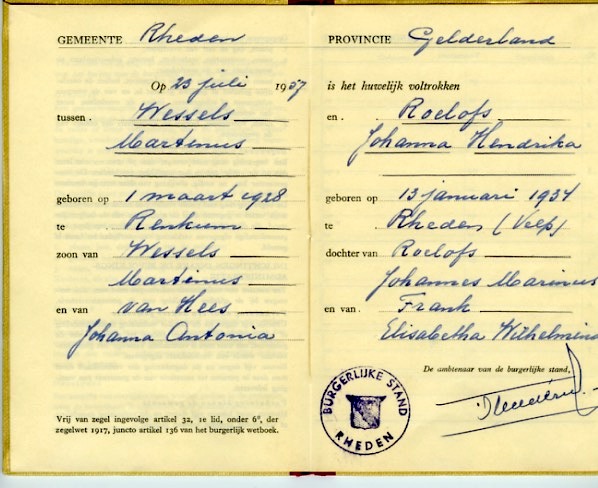 GEMEENTE Rheden
Op 23 juli 1957
tussen . Wessels
Martinus
geboren op 1 maart 1928
te Renkum
zoon van Wessels
Martinus
en van van Hees
Johanna Antonia
Vrij van zegel ingevolge artikel 32, 1e lid, onder 6°, der
zegelwet 1917, juncto artikel 136 van het burgerlijk wetboek.
PROVINCIE Gelderland
is het huwelijk voltrokken
en . Roelofs
Johanna Hendrika
geboren op 13 januari 1934
te . Rheden (Velp)
dochter van Roelofs
Johannes Marinus
en van . Frank
Elisabetha Wilhelmina
De ambtenaar van de burgerlijke stand,
BURGERLIJKE STAND
RHEDEN